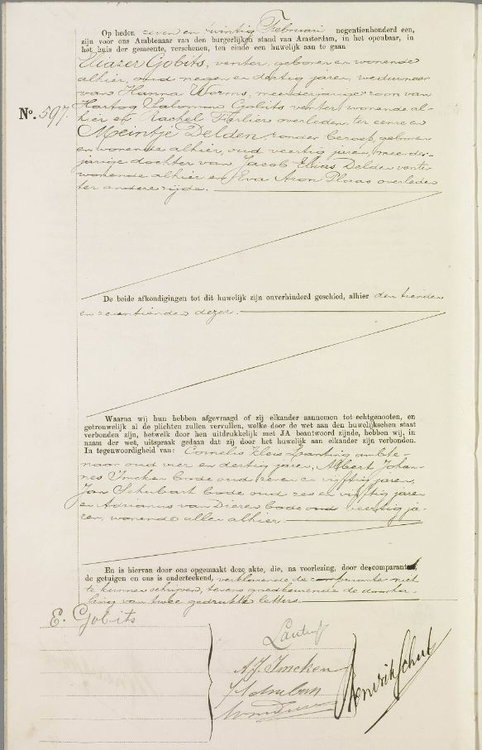 Op heden zeven en twintig Februari negentienhonderd een,
zijn voor ons Ambtenaar van den burgerlijken stand van Amsterdam, in het openbaar, in
het huis der gemeente, verschenen, ten einde een huwelijk aan te gaan
Eliazer Gobits, venter, geboren en wonende
alhier, oud negen en dertig jaren, weduwnaar
van Hanna Worms, meerderjarige zoon van
Hartog Salomon Gobits venter wonende al-
hier en Rachel overleden, ter eenre en
No. 597.
Meintje Delden zonder beroep, geboren
en wonende alhier, oud veertig jaren, meerder-
jarige dochter van Jacob Delden venter
wonende alhier en Eva overleden
ter andere zijde.
De beide afkondigingen tot dit huwelijk zijn onverhinderd geschied, alhier den tienden
en zeventienden dezer.
Waarna wij hun hebben afgevraagd of zij elkander aannemen tot echtgenooten, en
getrouwelijk al de plichten zullen vervullen, welke door de wet aan den huwelijkschen staat
verbonden zijn, hetwelk door hen uitdrukkelijk met JA beantwoord zijnde, hebben wij, in
naam der wet, uitspraak gedaan dat zij door het huwelijk aan elkander zijn verbonden.
In tegenwoordigheid van: Cornelis ambte-
naar oud vier en dertig jaren, Albert Johan-
nes Imcken bode oud zeven en vijftig jaren,
Jan Schubart bode oud zes en vijftig jaren
en Adrianus van Dieren bode oud veertig ja-
ren, wonende allen alhier.
En is hiervan door ons opgemaakt deze akte, die, na voorlezing, door de comparant
de getuigen en ons is onderteekend, verklarende de comparante niet
te kunnen schrijven, tevens goedkeurende de doorha-
ling van twee gedrukte letters.
E. Gobits
A. J. Imcken
Hendrik Schut